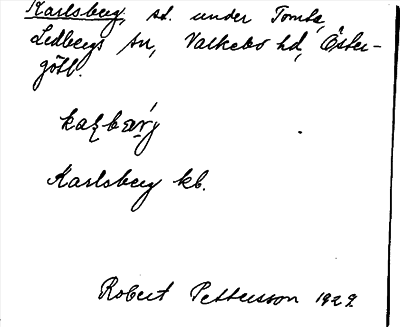 Karlsberg, sd. under Tomta,
Ledbergs sn, Valkebo hd, Öster-
götl.
Karlsberg kb.
Robert Pettersson 1929